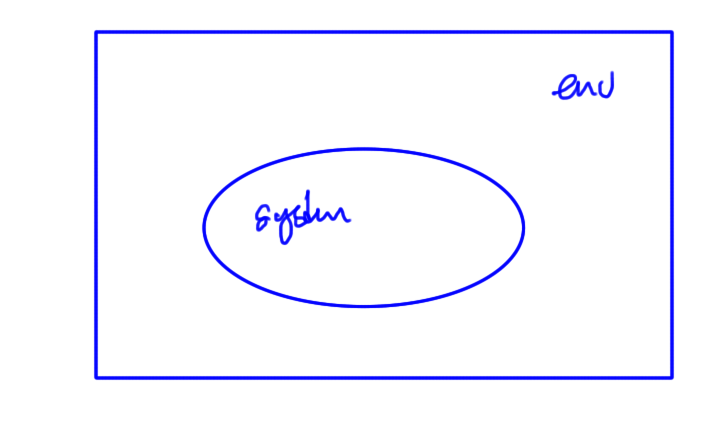 env
system